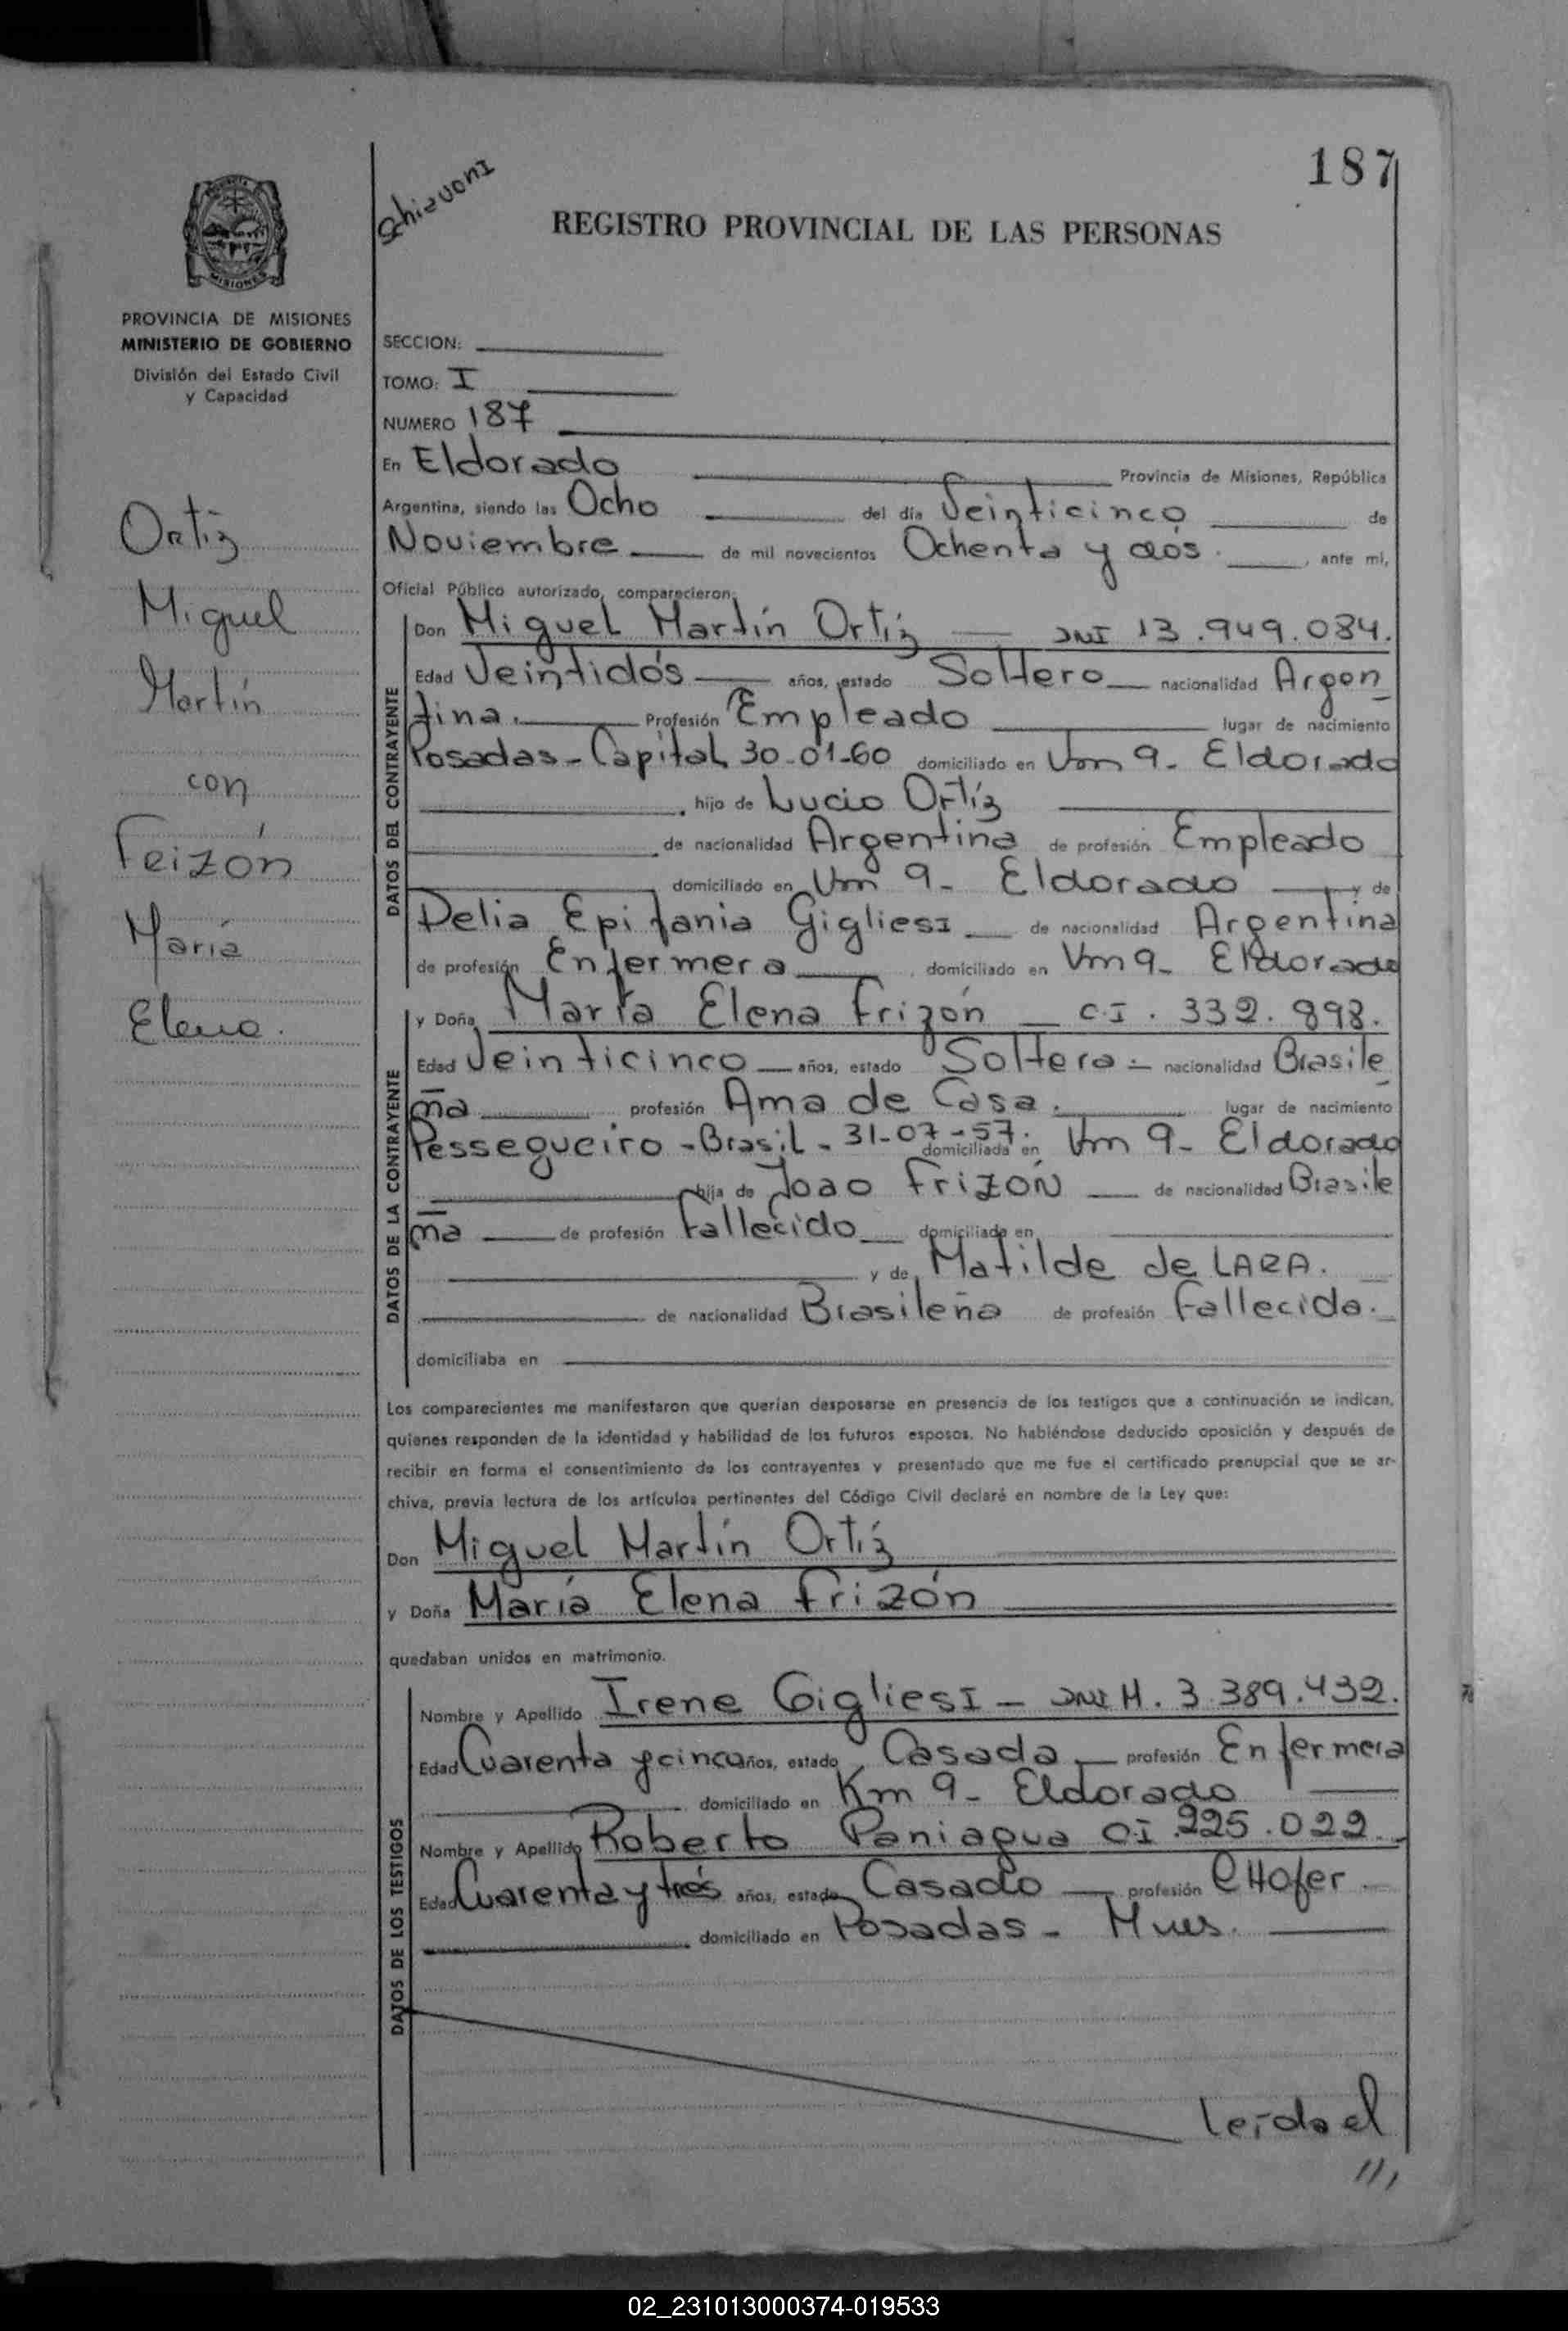 187
Schiavoni
REGISTRO PROVINCIAL DE LAS PERSONAS
MISIONES
PROVINCIA DE MISIONES
MINISTERIO DE GOBIERNO
División del Estado Civil
y Capacidad
Ortiz
Miguel
Martín
con
Frizón
María
Elena.
SECCION:
TOMO: I
NUMERO 187
En Eldorado Provincia de Misiones, República
Argentina, siendo las Ocho del día Veinticinco de
Noviembre de mil novecientos Ochenta y dos. , ante mi,
Oficial Público autorizado, comparecieron:
DATOS DEL CONTRAYENTE
Don Miguel Martín Ortiz — DNI 13.949.084.
Edad Veintidós años, estado Soltero nacionalidad Argen
tina. Profesión Empleado lugar de nacimiento
Posadas - Capital 30-01-60 domiciliado en Km 9 - Eldorado
, hijo de Lucio Ortíz
de nacionalidad Argentina de profesión Empleado
domiciliado en Km 9 - Eldorado y de
Delia Epifania Gigliesi de nacionalidad Argentina
de profesión Enfermera , domiciliado en Km 9 - Eldorado
DATOS DE LA CONTRAYENTE
y Doña María Elena Frizón — C.I. 332.898.
Edad Veinticinco años, estado Soltera.- nacionalidad Brasile
ña profesión Ama de Casa. lugar de nacimiento
Pessegueiro - Brasil - 31-07-57. domiciliada en Km 9 - Eldorado
hija de Joao Frizón de nacionalidad Brasile
ña de profesión Fallecido domiciliada en
y de Matilde de LARA.
de nacionalidad Brasileña de profesión Fallecida.
domiciliaba en
Los comparecientes me manifestaron que querían desposarse en presencia de los testigos que a continuación se indican,
quienes responden de la identidad y habilidad de los futuros esposos. No habiéndose deducido oposición y después de
recibir en forma el consentimiento de los contrayentes y presentado que me fue el certificado prenupcial que se ar-
chiva, previa lectura de los artículos pertinentes del Código Civil declaré en nombre de la Ley que:
Don Miguel Martín Ortíz
y Doña María Elena Frizón
quedaban unidos en matrimonio.
DATOS DE LOS TESTIGOS
Nombre y Apellido Irene Gigliesi - DNI M. 3.389.432.
Edad Cuarenta y cinco años, estado Casada profesión Enfermera
domiciliado en Km 9 - Eldorado
Nombre y Apellido Roberto Paniagua CI 225.022.
Edad Cuarenta y tres años, estado Casado profesión CHofer
domiciliado en Posadas -
Leída el
///
02_231013000374-019533